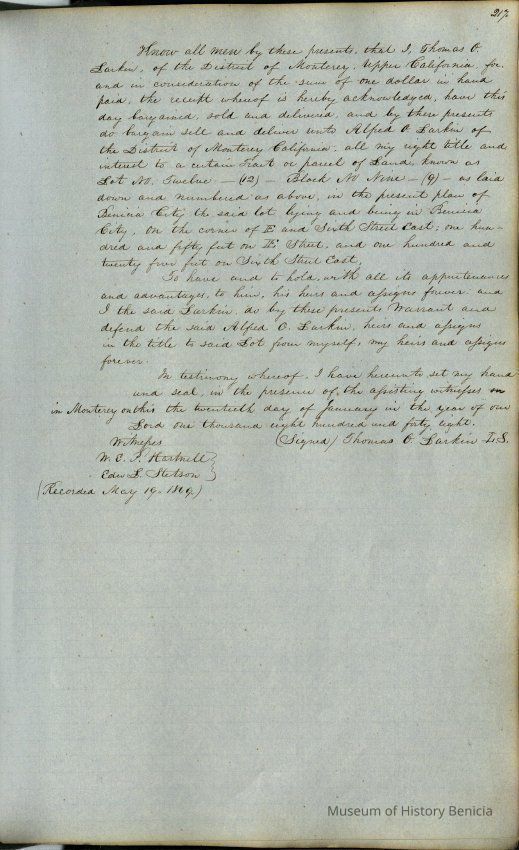 217.
Know all men by these presents, that I, Thomas O.
Larkin, of the District of Monterey, Upper California, for,
and in consideration of the sum of one dollar in hand
paid, the receipt whereof is hereby acknowledged, have this
day bargained, sold and delivered, and by these presents
do bargain sell and deliver unto Alfred O. Larkin of
the District of Monterey California, all my right title and
interest to a certain Tract or parcel of Land, known as
Lot No. Twelve - (12) - Block No Nine - (9) - as laid
down and numbered as above, in the present plan of
Benicia City, the said lot lying and being in Benicia
City, On the corner of E and Sixth Street East; one hun-
dred and fifty feet on E Street, and one hundred and
twenty five feet on Sixth Street East,
To have and to hold, with all its appurtenances
and advantages, to him, his heirs and assigns forever. and
I the said Larkin, do by these presents Warrant and
defend the said Alfred O. Larkin, heirs and assigns
in the title to said Lot from myself, my heirs and assigns
forever.
In testimony whereof, I have hereunto set my hand
and seal, in the presence of, the assisting witnesses
in Monterey on this the twentieth day of January in the year of our
Lord one thousand eight hundred and forty eight.
Witnesses (Signed) Thomas O. Larkin L.S.
W. E. P. Hartnell
Edw L. Stetson
(Recorded May 19. 1849.)
Museum of History Benicia